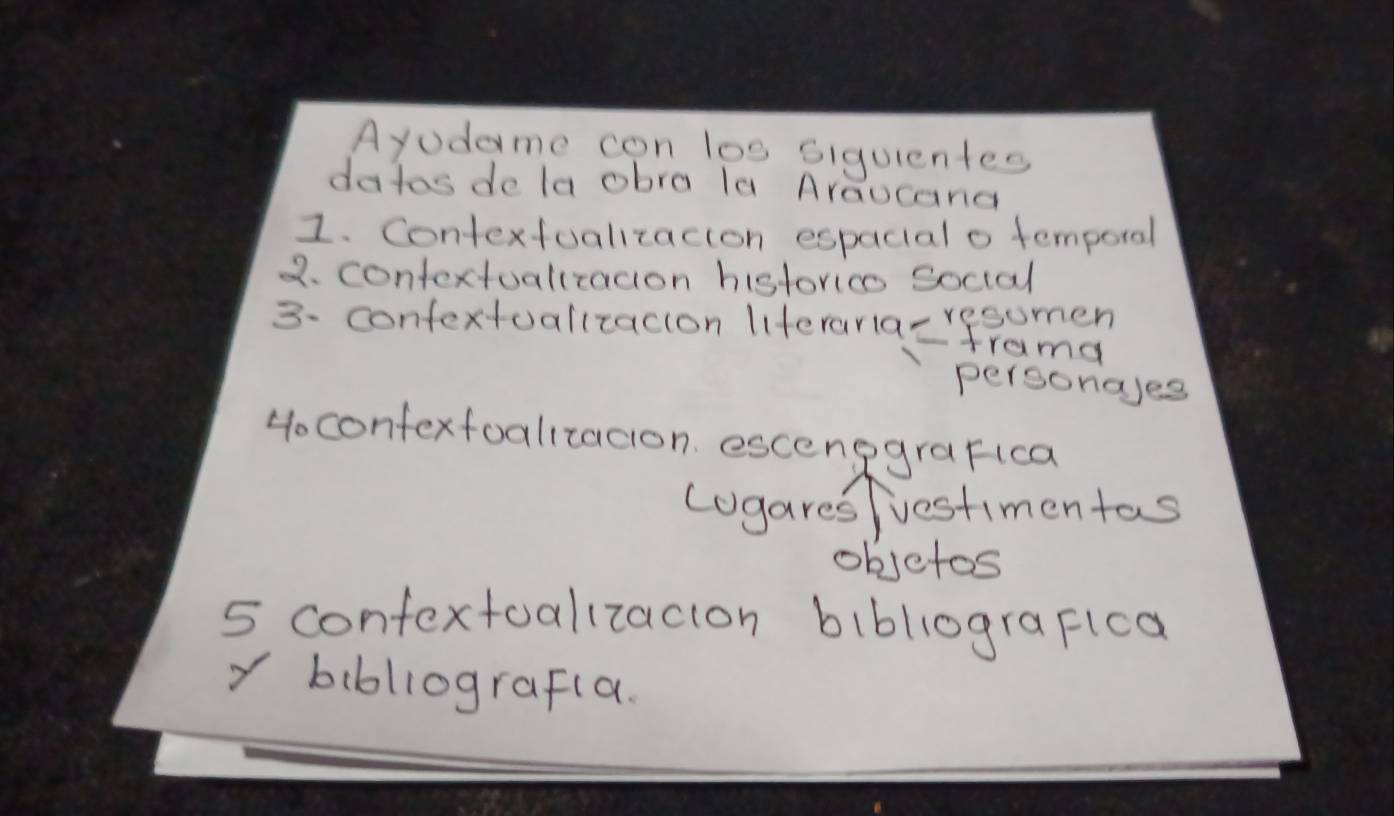 Ayudame con los siguientes
datos de la obra la Araucana
1. contextualizacion espacial o temporal
2. contextualizacion historico social
3. contextualizacion literaria - resumen
- trama
personajes
4. contextualizacion. escenografica
Lugares vestimentas
objetos
5 contextualizacion bibliografica
y bibliografia.